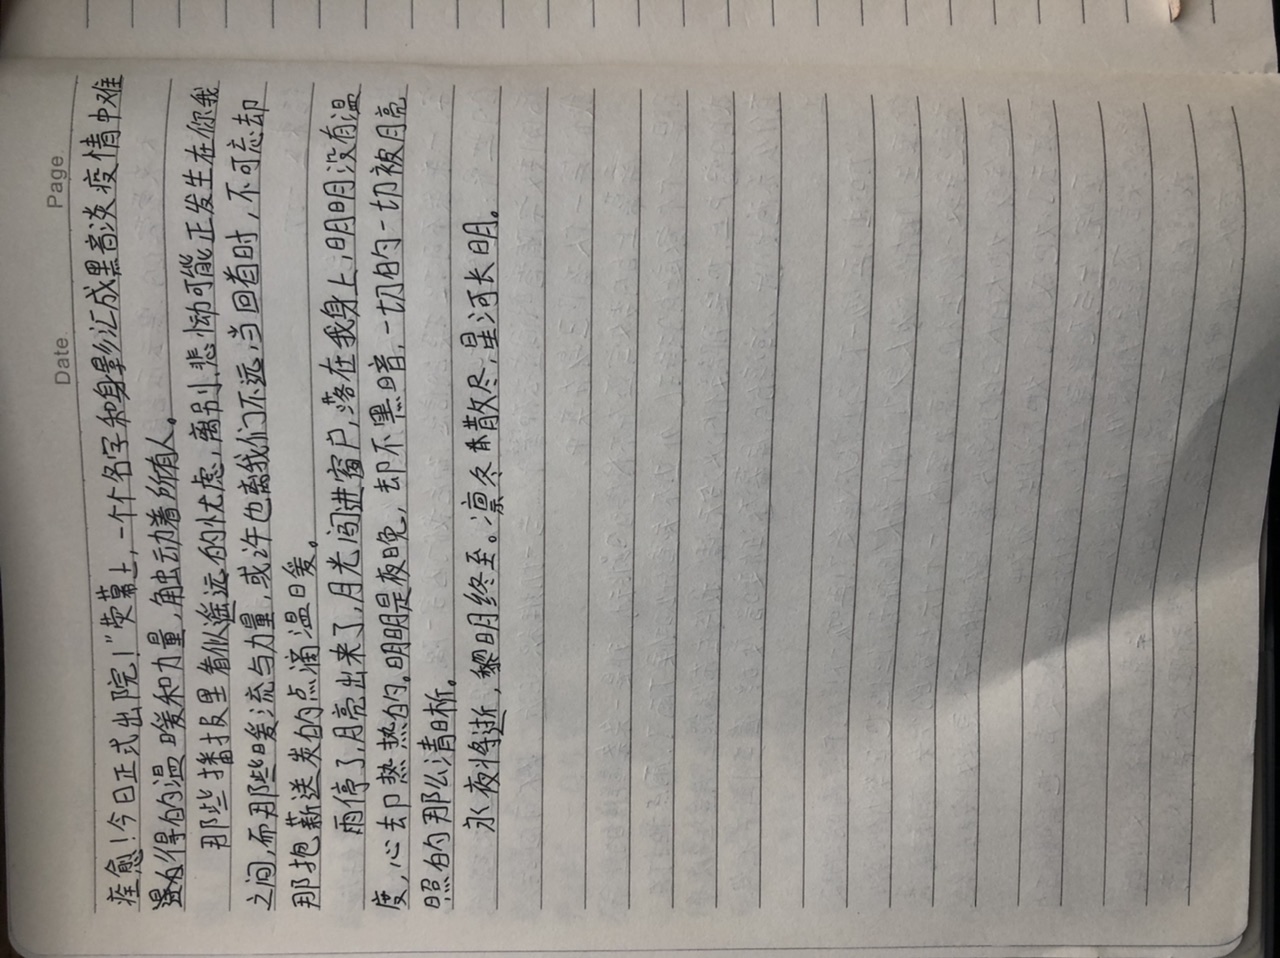 Date.
Page
痊愈！今日正式出院！"荧幕上，一个个名字和身影汇成黑暗疫情中难
得的温暖和力量，触动着所有人。
那些播报里看似遥远的忧虑，离别、悲恸可能正发生在你我
之间，而那些暖流与力量，或许也离我们不远，当回首时，不可忘却
那抱薪送炭的点滴温暖。
雨停了，月亮出来了，月光闯进窗户，落在我身上，明明没有温
度，心却热热的。明明是夜晚，却不黑暗，一切的一切被月亮
照的那么清晰。
永夜将逝，黎明终至。凛冬散尽，星河长明。